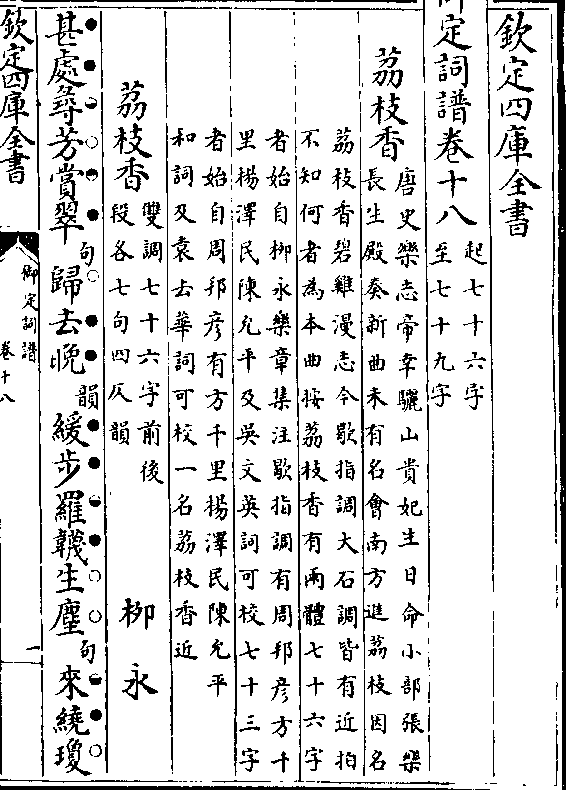 欽定四庫全書
御定詞譜卷十八
起七十六字
至七十九字
荔枝香
唐史樂志帝幸驪山貴妃生日命小部張樂
長生殿奏新曲未有名會南方進荔枝因名
荔枝香碧雞漫志今歇指調大石調皆有近拍
不知何者為本曲按荔枝香有兩體七十六字
者始自柳永樂章集注歇指調有周邦彦方千
里楊澤民陳允平及吳文英詞可校七十三字
者始自周邦彦有方千里楊澤民陳允平
和詞及袁去華詞可校一名荔枝香近
荔枝香
雙調七十六字前後
段各七句四仄韻
柳永
甚處尋芳賞翠句歸去晚韻緩步羅韈生塵句來繞瓊
欽定四庫全書
御定詞譜
卷十八
一